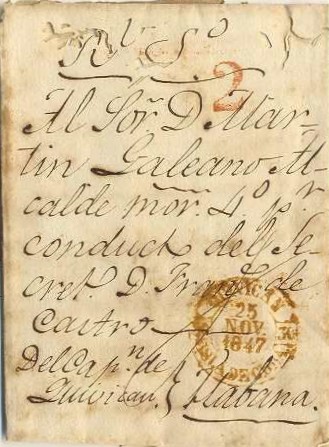 Rl. So
2
Al Sor. D. Mar-
tin Galeano Al-
calde mor. 4o. pr.
conducto del Se-
cret. D. Franco. de
Castro
Del Capn. de
Quivican
Habana.
25
NOV
1847